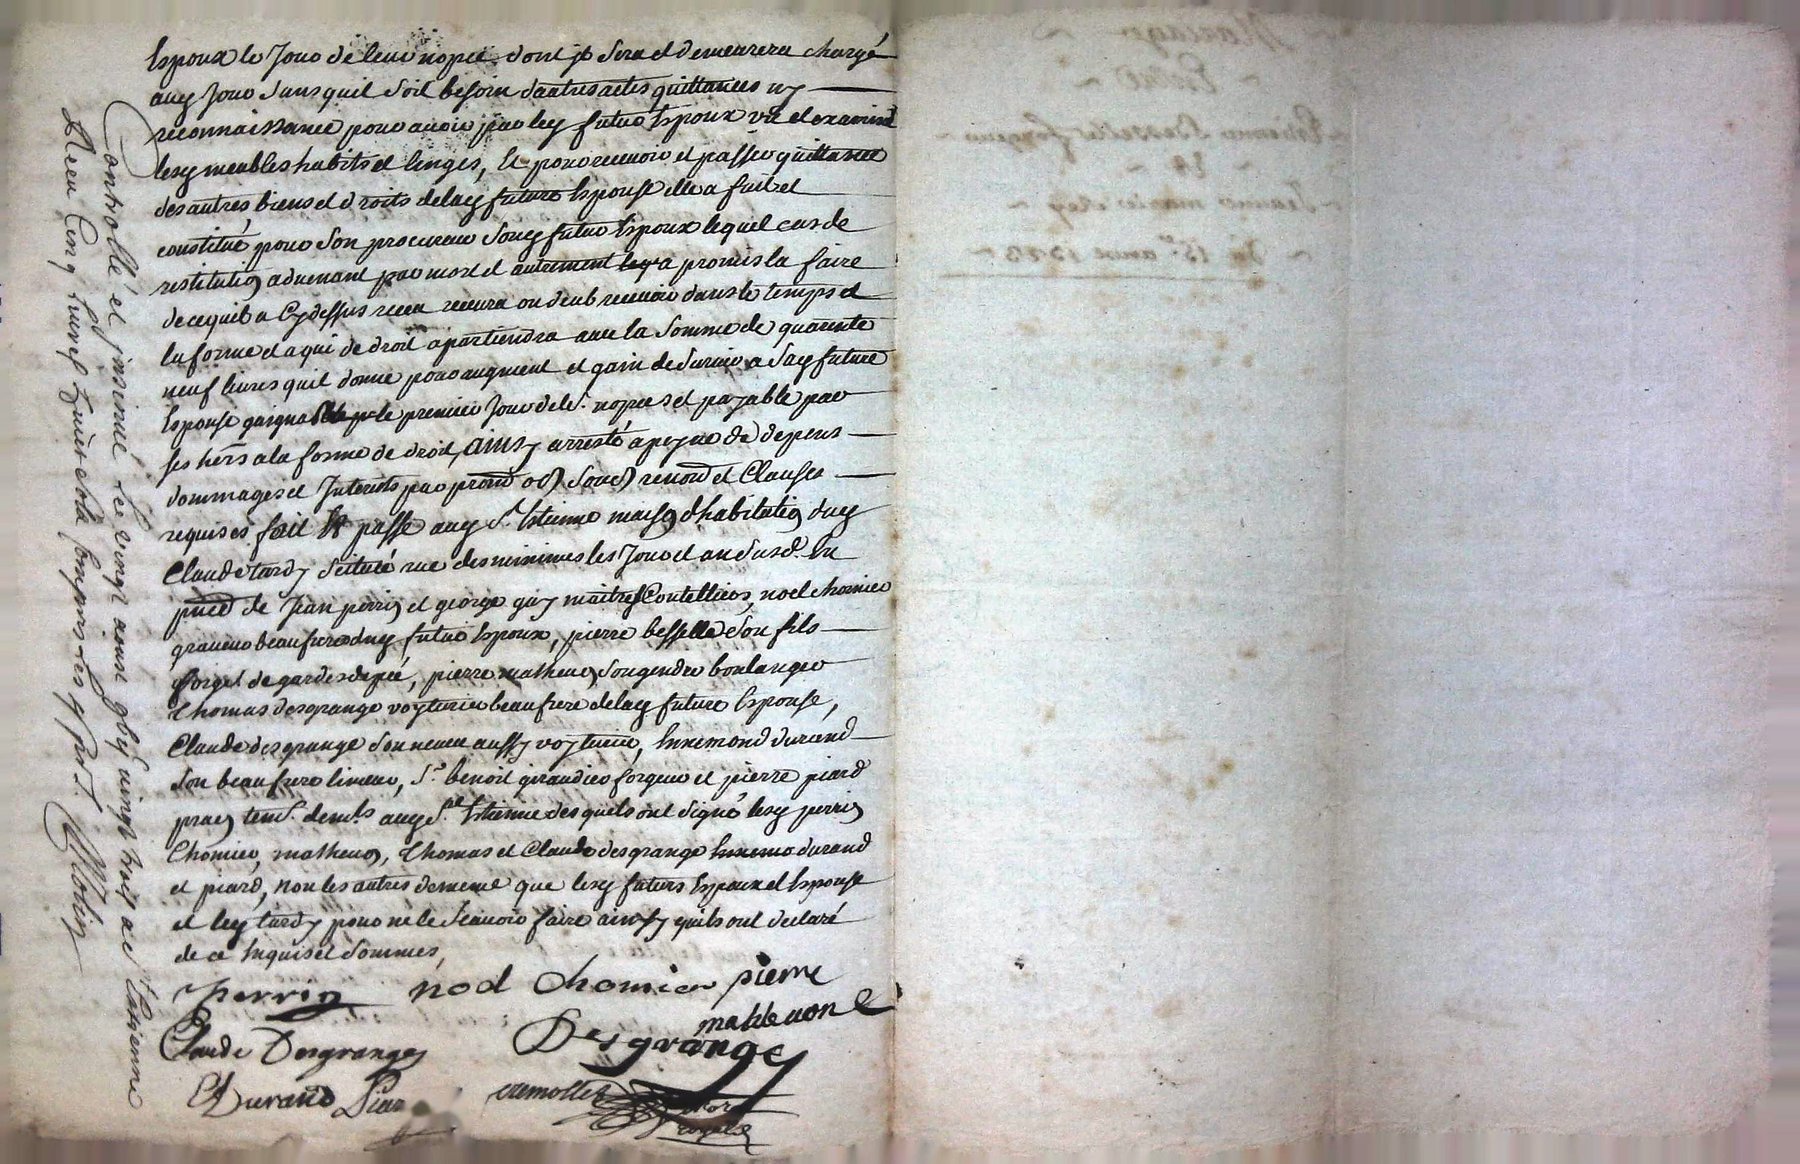 Espoux le Jour de leur nopces dont jl sera et demeurera chargé
aud Jour sans quil soit besoin dautres actes quittances ny
reconnaissance pour avoir par led futur Espoux vu et examiné
lesd meubles habits et linges, Et pour recevoir et passer quittance
des autres biens et droits delad future Espouse elle a fait et
constitué pour son procureur soud futur Espoux lequel cas de
restitution advenant par mort et autrement a promis la faire
de ce quil a Cydessus receu recevra ou deub recevoir dans le temps et
la forme et a qui de droit apartiendra avec la somme de quarente
neuf livres quil donne pour augment et gain de survie a sad future
Espouse gaignable le premier Jour desd. nopces et payable par
ses hers a la forme de droit, ainsy arresté a peyne de depens
dommages et Interets par prom obon soubn renond et Clauses
requises fait & passé aud St. Estienne maison dhabitation dud
Claude tardy scituée rue des minimes les Jour et an susd. En
pnce de Jean perrin et george guy maitres Coutelliers, noel chomier
graveur beaufrere dud futur Espoux, pierre bessette son fils
forgr. de gardes depée, pierre mathevon, son gendre boulanger
Thomas desgrange voyturier beaufrere delad future Espouse,
Claude desgrange son neveu aussy voyturier, Ennemond durand
son beaufrere limeur, Sr. benoit giraudier forgeur et pierre piard
pracn temS. demts aud St. Estienne desquels ont signé lesd perrin
Chomier, mathevon, Thomas et Claude desgrange Ennemo durand
et piard, non les autres de meme que lesd futurs Espoux et Espouse
et led tardy pour ne le scavoir faire ainsy quils ont declaré
de ce Enquis et sommés,
Perrin noel chomier pierre
mathevon
Claude Desgranges Desgrange
EDurand Piar
notre
royal
Controllé et jnsinué le vingt aoust gby vingt trois a St Estienne
Receu Cinq livres huit sols
Mariage
Entre
Estienne Bessette forgeur
Et
Jeanne marie
Du 15e. aoust 1723